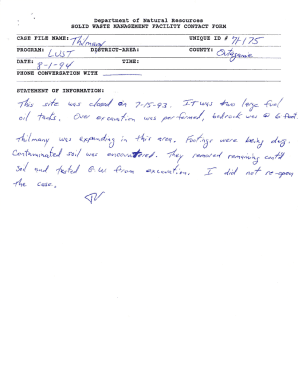 Department of Natural Resources
SOLID WASTE MANAGEMENT FACILITY CONTACT FORM
CASE FILE NAME: Thilmany UNIQUE ID #
PROGRAM: LUST DISTRICT-AREA: COUNTY: Outagamie
DATE: 8-1-94 TIME:
PHONE CONVERSATION WITH
STATEMENT OF INFORMATION:
This site was closed on 7-15-93. It was two large fuel
oil tanks. Over excavation was performed, bedrock was @ 6 feet.
Thilmany was expanding in this area. Footings were being dug.
Contaminated soil was encountered. They removed remaining
soil and tested G.W. from excavation. I did not re-open
the case.